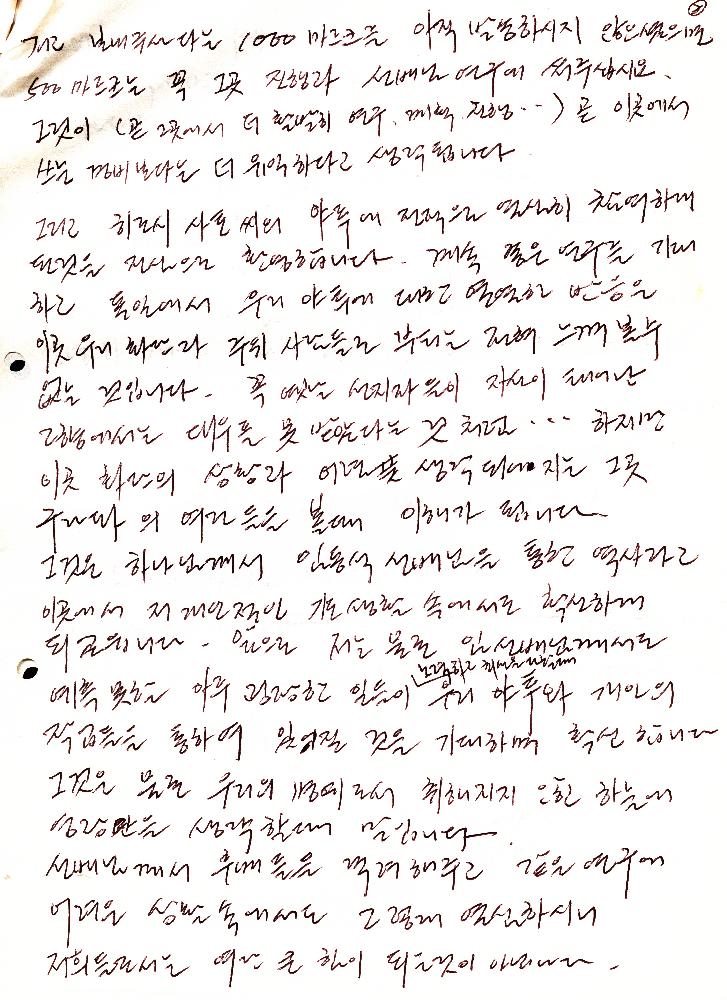 ②
그리고 보내주신다는 1000 마르크를 아직 발송하시지 않으셨으면
500 마르크는 꼭 그곳 진행과 선배님 연구에 써주십시오.
그것이 (곧 그곳에서 더 활발히 연구, 계획, 진행..) 곧 이곳에서
쓰는 경비보다는 더 유익하다고 생각됩니다.
그리고 히로시 씨의 야투에 전적으로 열심히 참여하게
된것을 진심으로 환영합니다. 계속 좋은 연구를 기대
하고 독일에서 우리 야투에 대한 열렬한 반응은
이곳 우리 화단과 주위 사람들로 부터는 전혀 느껴 볼수
없는 것입니다. 꼭 옛날 선지자들이 자신이 태어난
고향에서는 대우를 못 받았다는 것 처럼... 하지만
이곳 화단의 상황과 어련 생각 되어지는 그곳
의 여건들을 볼때 이해가 됩니다
그것은 하나님께서 임동식 선배님을 통한 역사라고
이곳에서 저 개인적인 기도생활 속에서도 확신하게
되곤합니다. 앞으로 저는 물론 임선배님께서도
예측 못한 아주 굉장한 일들이 우리 야투와 개인의
작업들을 통하여 있어질 것을 기대하며 확신합니다
그것은 물론 우리의 명예로서 취해지지 않한 하늘에
영광만을 생각할때 말입니다.
선배님께서 후배들을 격려해주고 같은 연구에
어려운 상황 속에서도 그렇게 열심하시니
저희들로서는 여간 큰 힘이 되는것이 아닙니다.